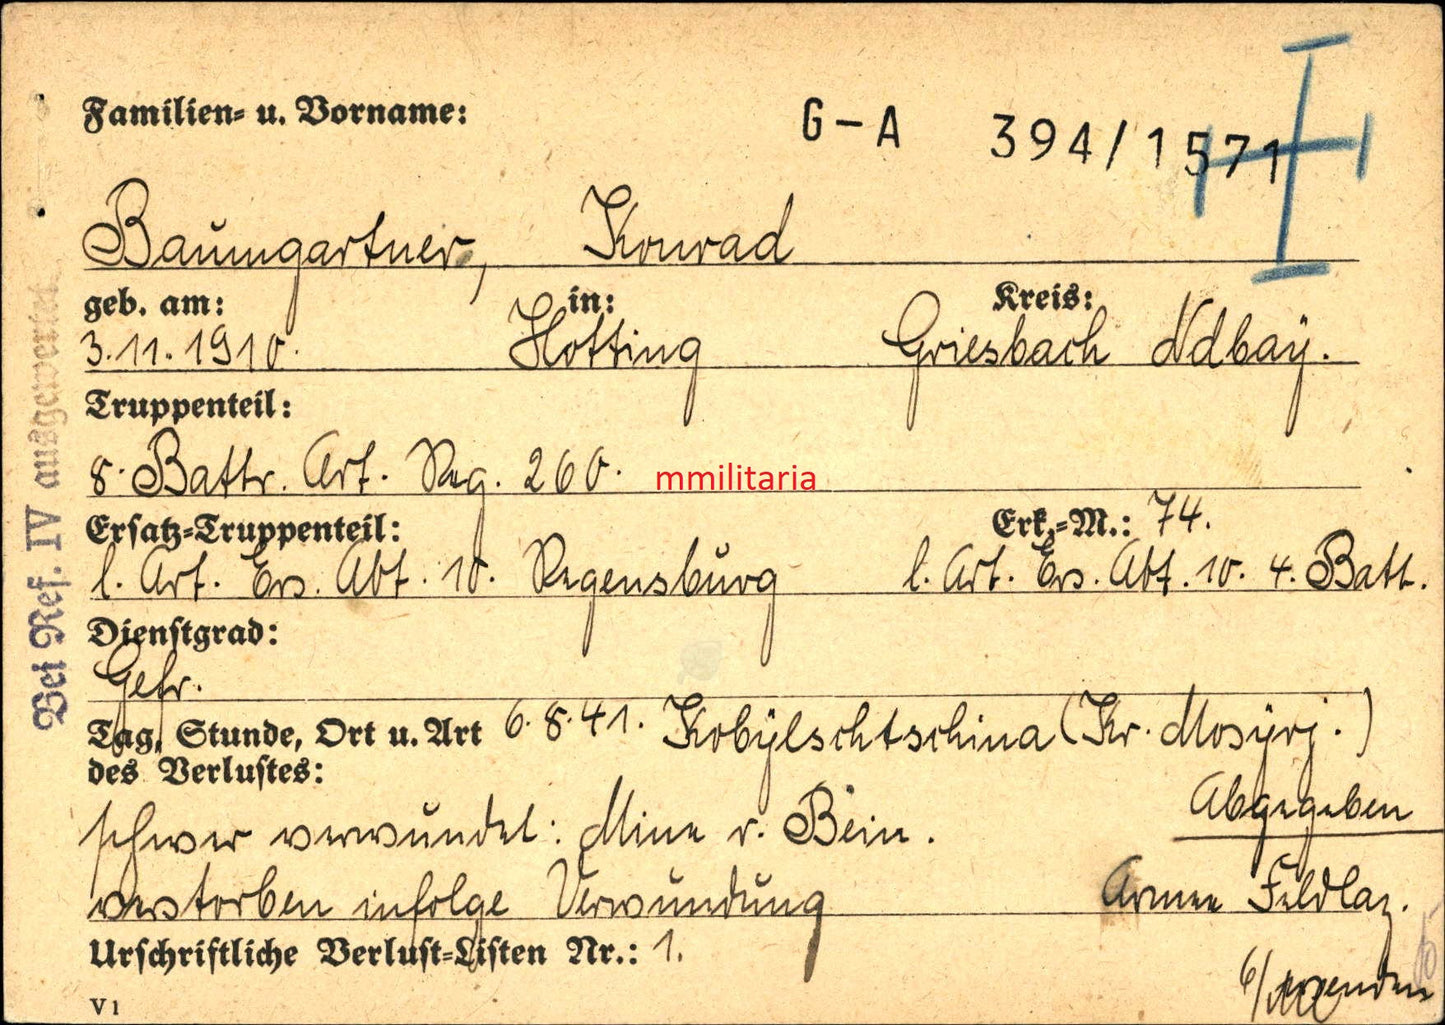 Familien- u. Vorname:
G-A 394/1571
Baumgartner, Konrad
geb. am: in: Kreis:
3.11.1910. Hotting Griesbach Ndbay.
Truppenteil:
8. Battr. Art. Reg. 260.
mmilitaria
Ersatz-Truppenteil: Erk.-M.: 74.
l. Art. Ers. Abt. 10. Regensburg l. Art. Ers. Abt. 10. 4. Batt.
Dienstgrad:
Gefr.
Tag, Stunde, Ort u. Art 6.8.41. Kobylschtschina (Kr. Mosyrj.)
des Verlustes:
Abgegeben
schwer verwundet: Mine r. Bein.
verstorben infolge Verwundung Armee Feldlaz.
Urschriftliche Verlust-Listen Nr.: 1.
wenden
V 1
Bei Ref. IV ausgewertet